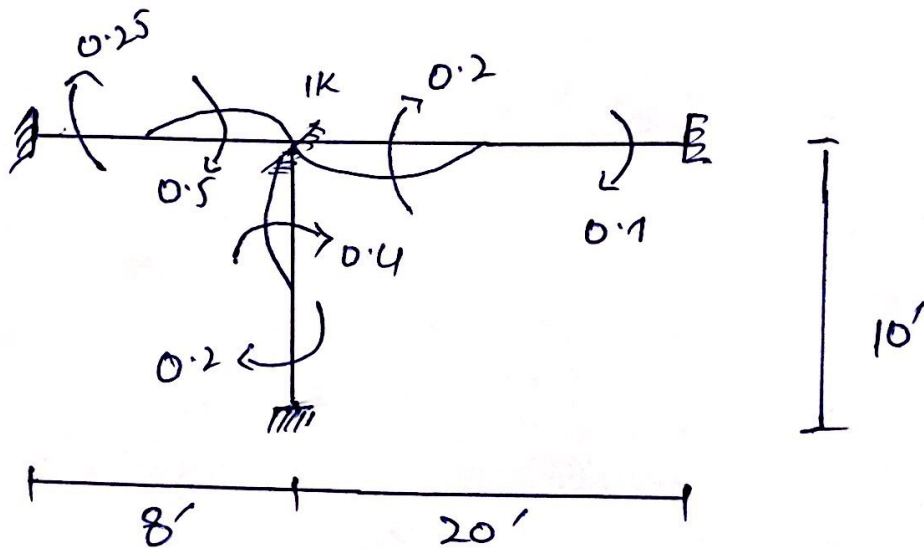 0.25
1K
0.2
0.5
0.1
0.4
0.2
10'
8'
20'